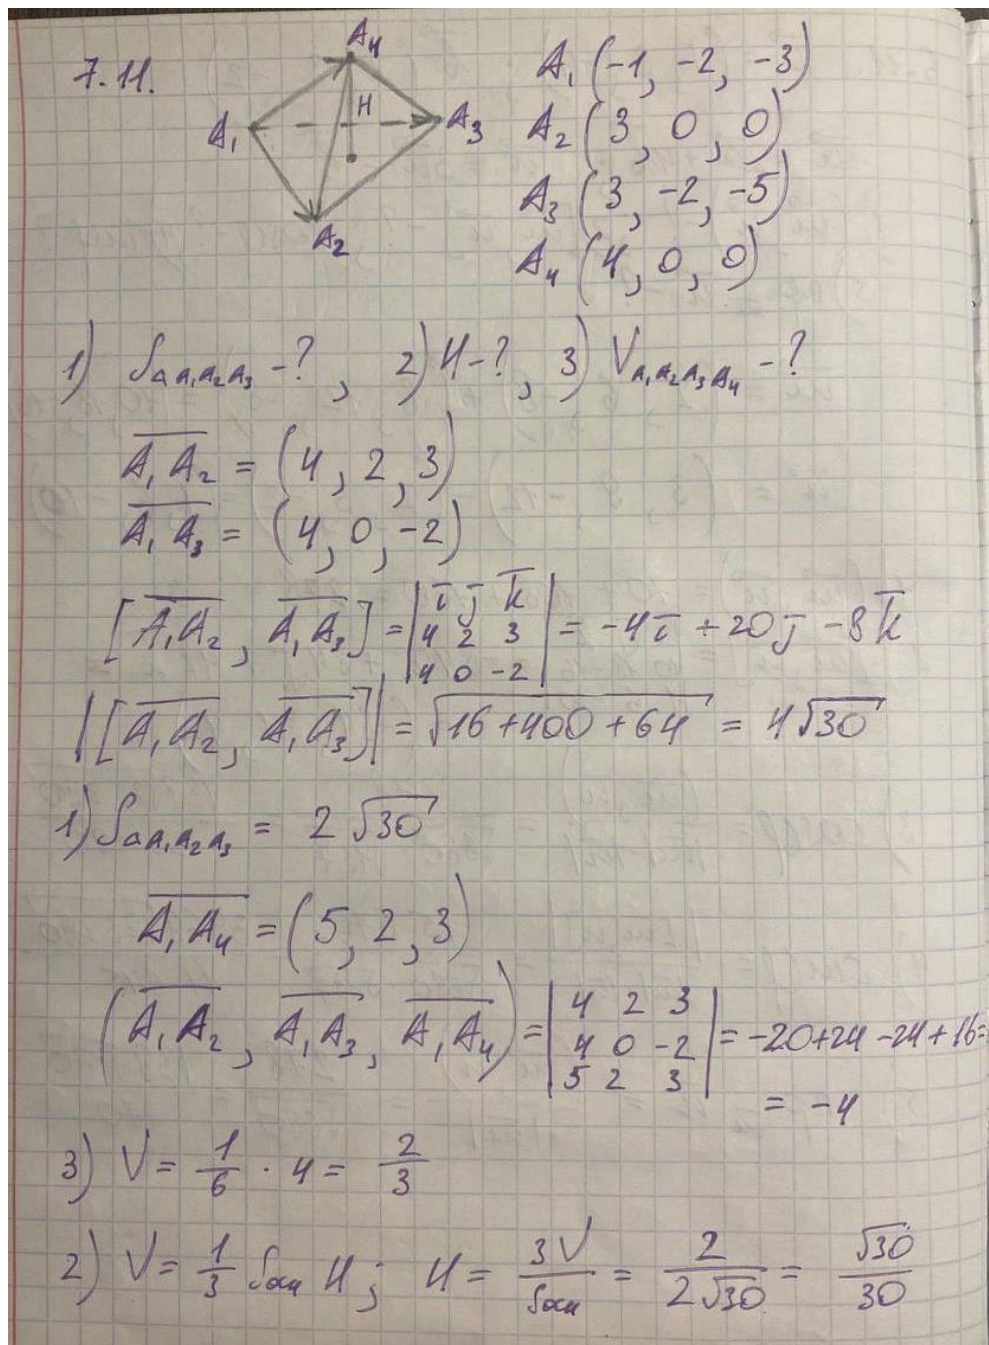 7.11.
A₄
H
A₁
A₃
A₂
A₁ (-1, -2, -3)
A₂ (3, 0, 0)
A₃ (3, -2, -5)
A₄ (4, 0, 0)
1) S△A₁A₂A₃ - ? , 2) H - ? , 3) V A₁A₂A₃A₄ - ?
A₁A₂ = (4, 2, 3)
A₁A₃ = (4, 0, -2)
[A₁A₂, A₁A₃] = | i j k ; 4 2 3 ; 4 0 -2 | = -4i + 20j - 8k
|[A₁A₂, A₁A₃]| = √(16+400+64) = 4√30
1) S△A₁A₂A₃ = 2√30
A₁A₄ = (5, 2, 3)
(A₁A₂, A₁A₃, A₁A₄) = | 4 2 3 ; 4 0 -2 ; 5 2 3 | = -20+24-24+16 =
= -4
3) V = 1/6 · 4 = 2/3
2) V = 1/3 Sосн H ; H = 3V/Sосн = 2/(2√30) = √30/30